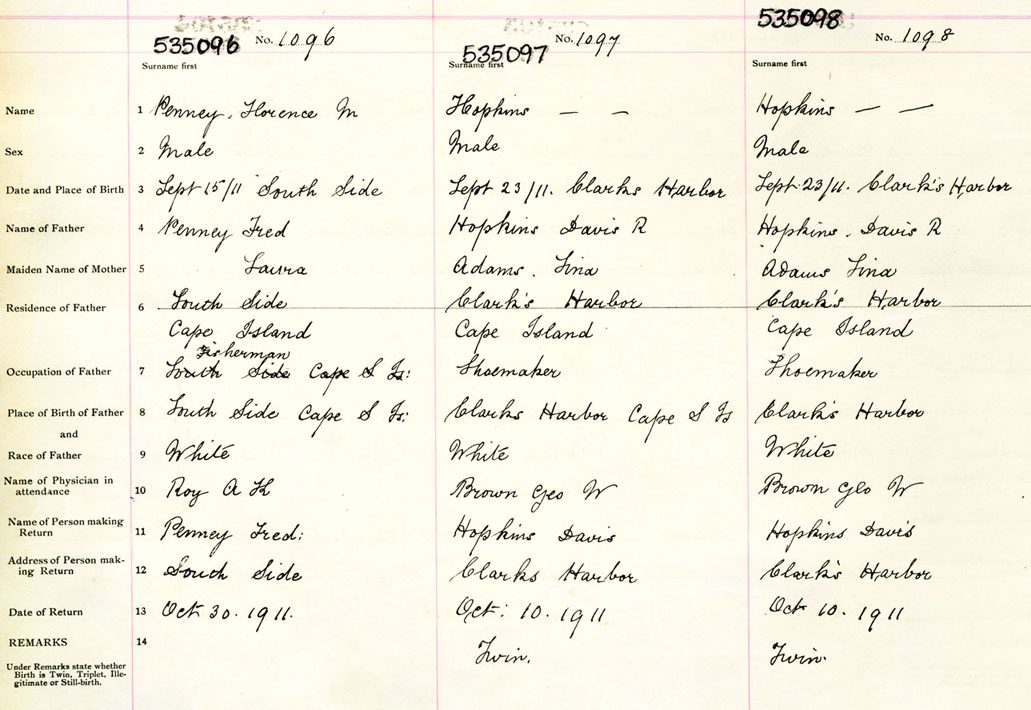 535096 No. 1096 535097 No. 1097 535098 No. 1098
Surname first Surname first Surname first
Name 1 Penney, Florence M Hopkins — — Hopkins — —
Sex 2 Male Male Male
Date and Place of Birth 3 Sept 15/11 South Side Sept 23/11. Clarks Harbor Sept. 23/11. Clark's Harbor
Name of Father 4 Penney Fred Hopkins Davis R Hopkins, Davis R
Maiden Name of Mother 5 Laura Adams, Tina Adams Tina
Residence of Father 6 South Side Clark's Harbor Clark's Harbor
Cape Island Cape Island Cape Island
Fisherman
Occupation of Father 7 South Side Cape S Is: Shoemaker Shoemaker
Place of Birth of Father 8 South Side Cape S Is: Clarks Harbor Cape S Is Clark's Harbor
and
Race of Father 9 White White White
Name of Physician in
attendance 10 Roy A H Brown Geo W Brown Geo W
Name of Person making
Return 11 Penney Fred: Hopkins Davis Hopkins Davis
Address of Person mak-
ing Return 12 South Side Clarks Harbor Clark's Harbor
Date of Return 13 Oct 30. 1911. Oct: 10. 1911 Oct 10. 1911
REMARKS 14
Twin. Twin.
Under Remarks state whether
Birth is Twin, Triplet, Ille-
gitimate or Still-birth.